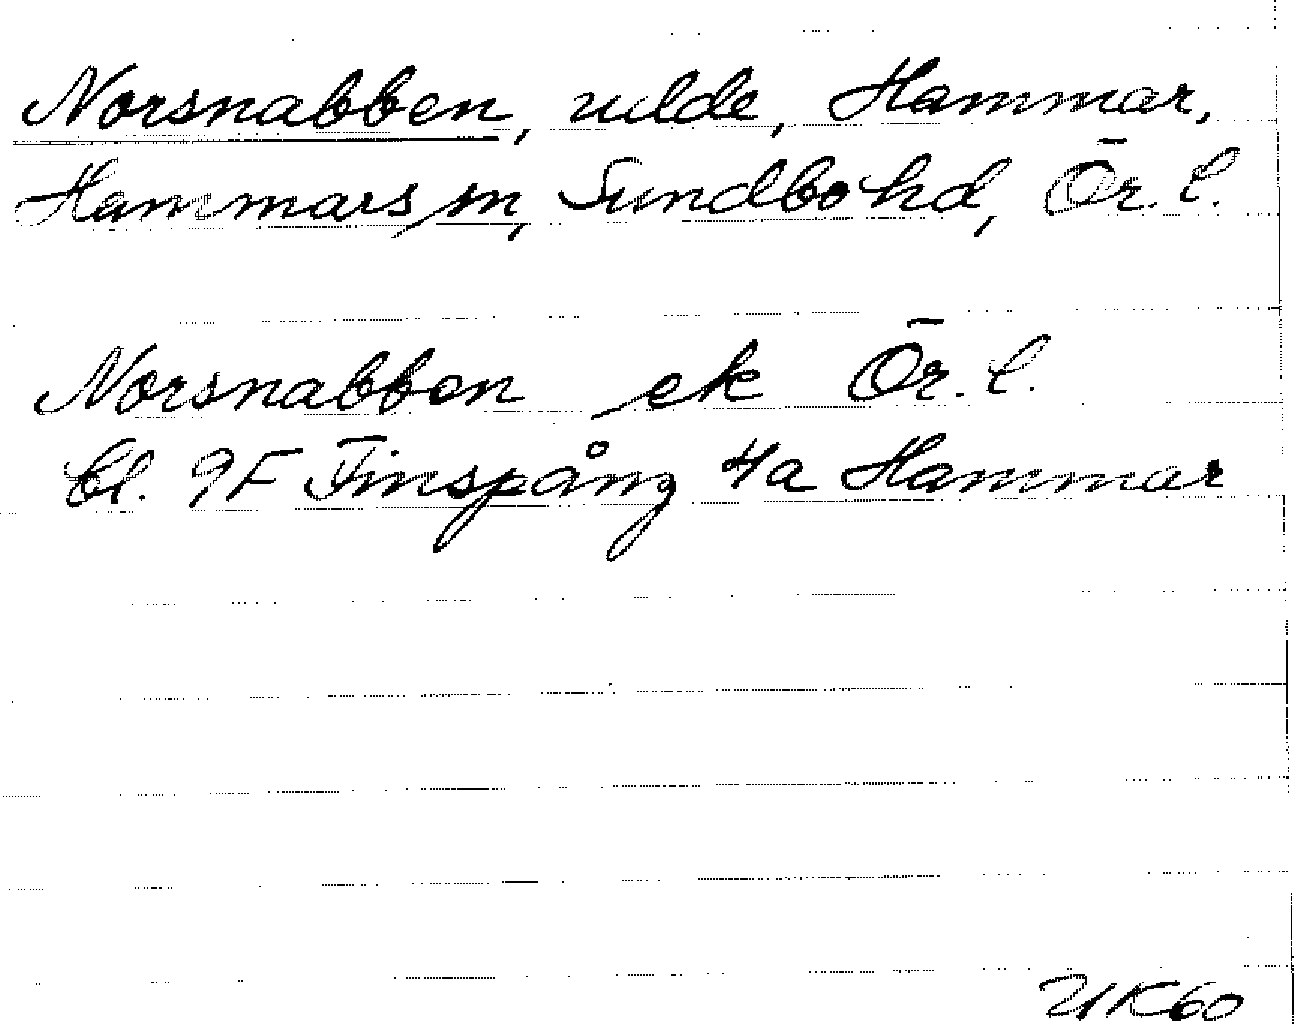 Norsnabben, udde, Hammar,
Hammars sn, Sundbo hd, Ör. l.
Norsnabben ek Ör. l.
bl. 9F Finspång 4a Hammar
UK60